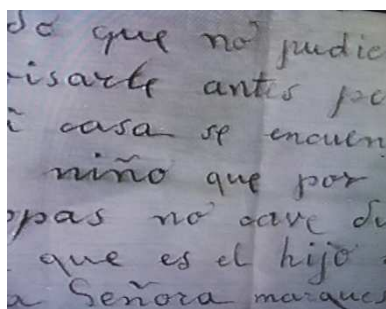 do que no pudie
isarte antes pe
i casa se encuen
niño que por
opas no cave du
que es el hijo
a Señora marques